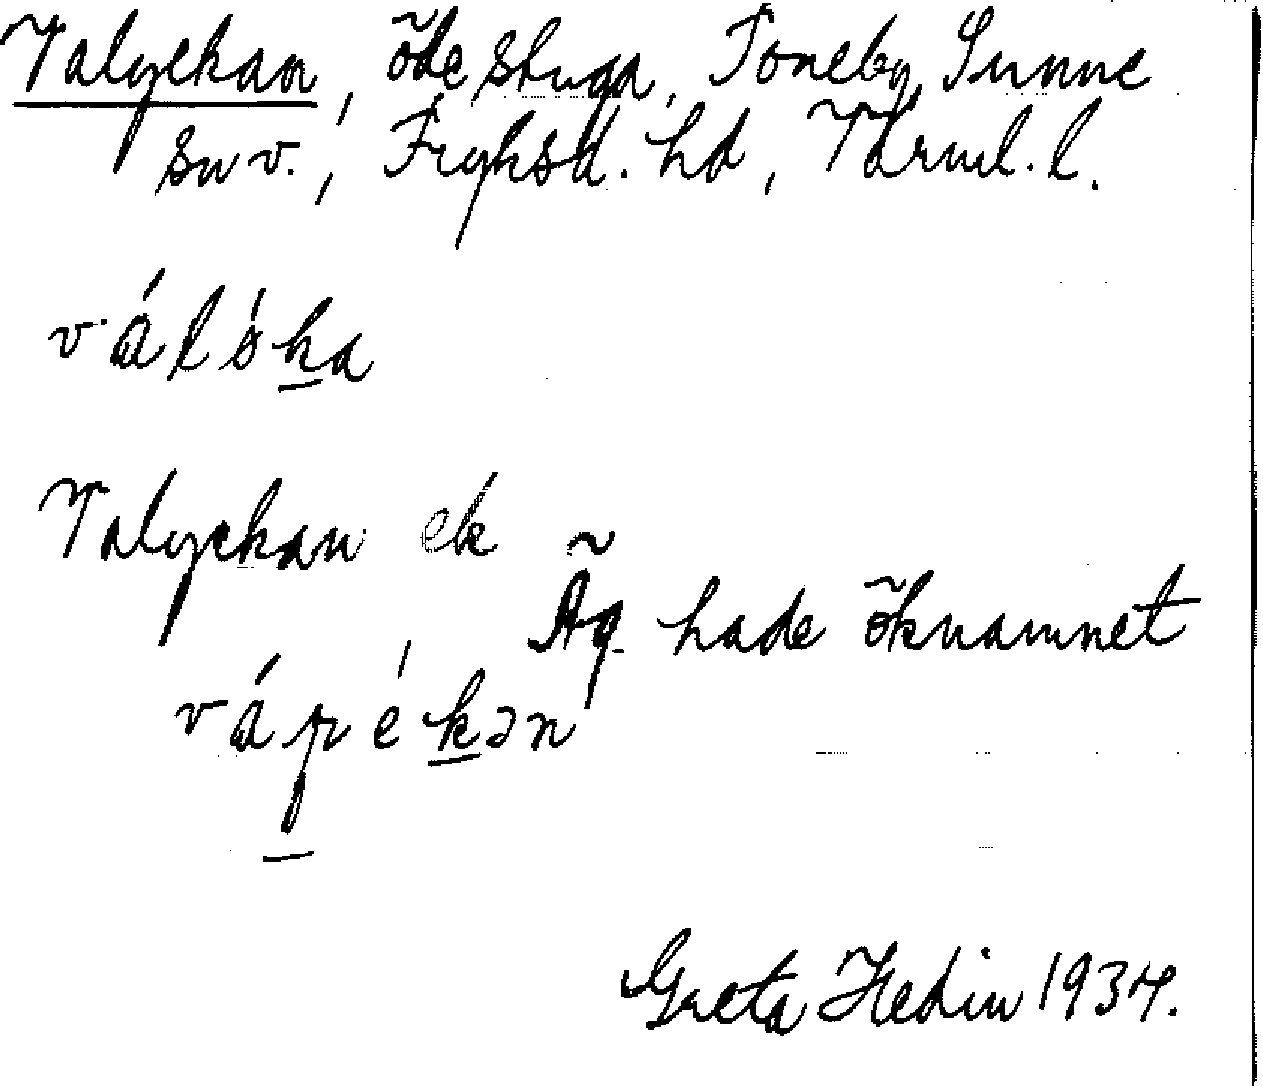 Valyckan, öde stuga, Toneby, Sunne
sn v., Fryksd. hd, Värml. l.
válǿka
Valyckan ek
Äg. hade öknamnet
vápékən
Greta Hedin 1934.